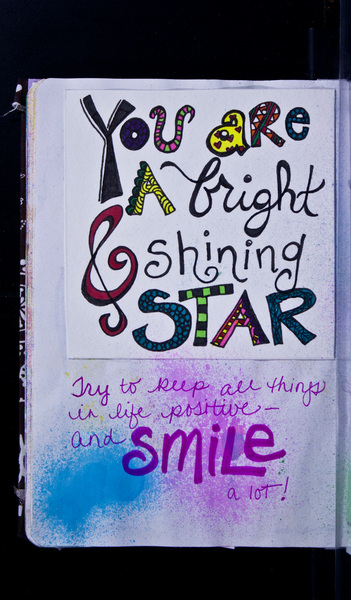 YOU aRe
A bright
& shining
STAR
Try to keep all things
in life positive -
and SMiLE
a lot!